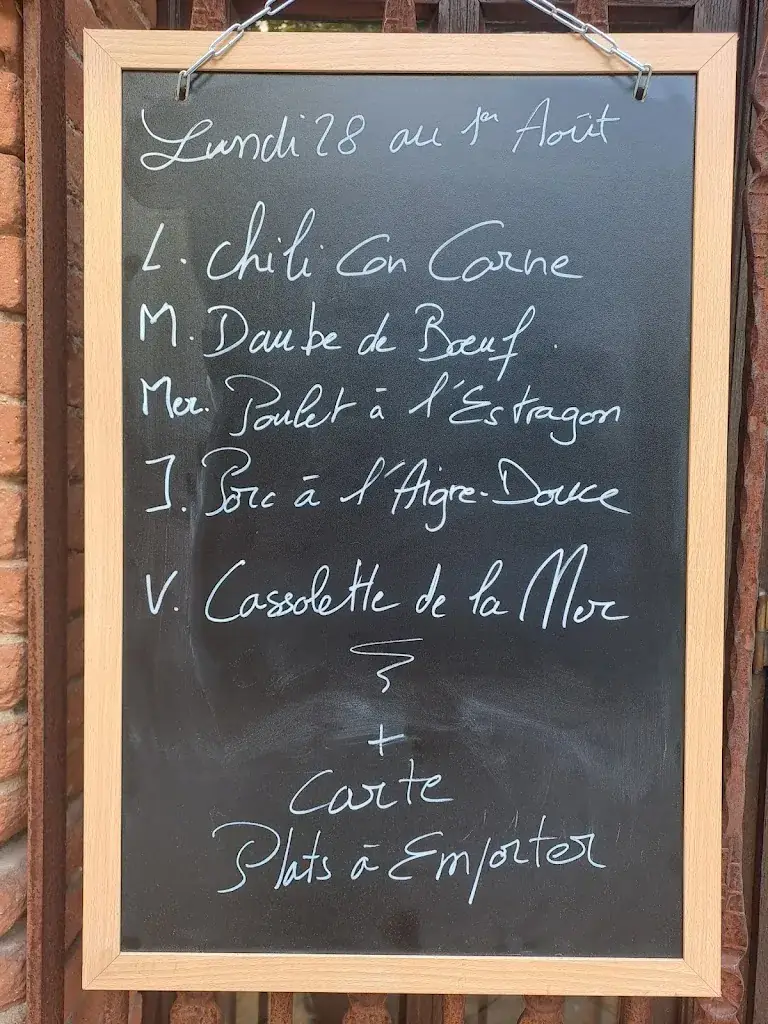 Lundi 28 au 1er Août
L. Chili Con Carne
M. Daube de Bœuf.
Mer. Poulet à l'Estragon
J. Porc à l'Aigre-Douce
V. Cassolette de la Mer
+
Carte
Plats à Emporter